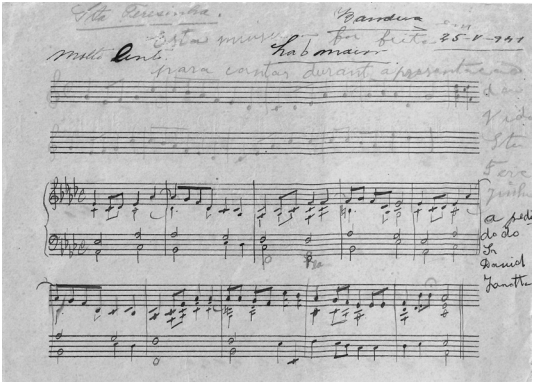 Sta Teresinha.
Bandeira
Esta musica foi feita 25-V-941
Molto Lento.
para cantar durante a apresentação
da
Vida
Sta
Tere
zinha
a pedi
do do
Sr
David